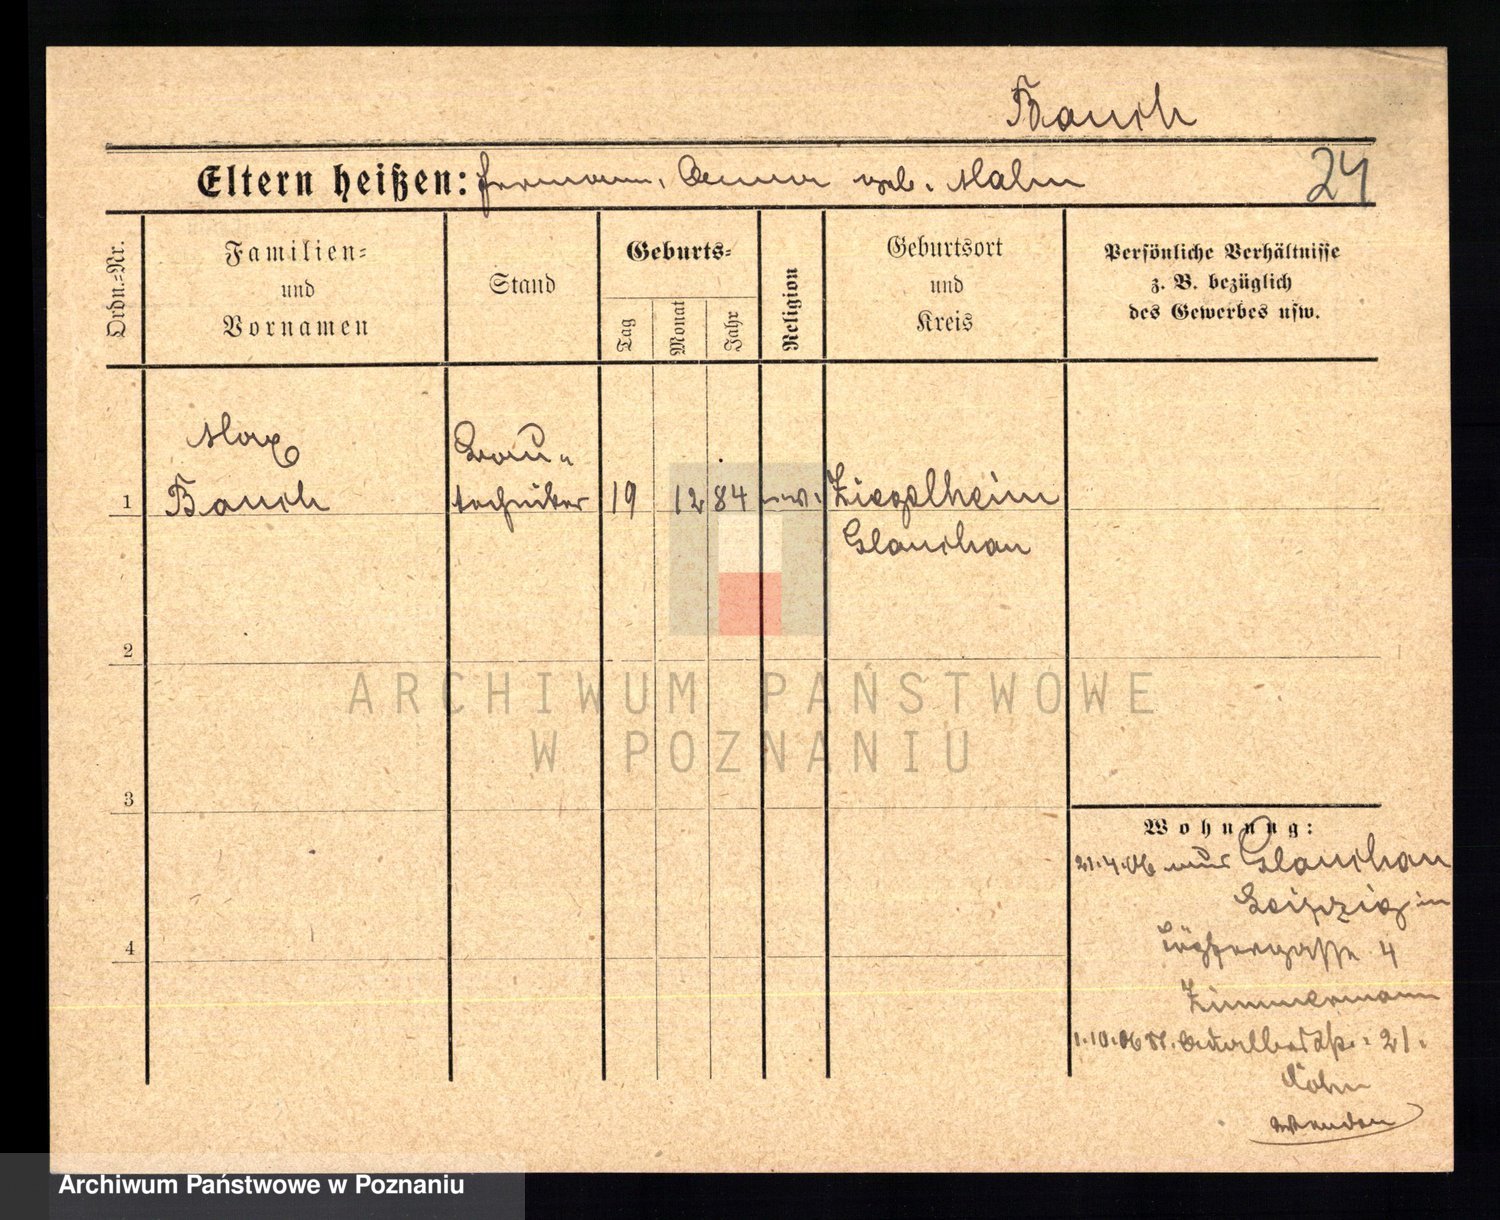 Bauch
Eltern heißen: Hermann, Anna geb. Mahn
24
Ordn.=Nr.
Familien=
und
Vornamen
Stand
Geburts=
Tag
Monat
Jahr
Religion
Geburtsort
und
Kreis
Persönliche Verhältnisse
z. B. bezüglich
des Gewerbes usw.
Max
Bau-
1 Bauch techniker 19 12 84 ev. Ziegelheim
Glauchau
2
3
4
Wohnung:
21.4.06 aus Glauchau
Leipzig in
4
Zimmermann
1.10.06 St. Adalbertstr. 21.
Cohn
Wenden
ARCHIWUM PAŃSTWOWE
W POZNANIU
Archiwum Państwowe w Poznaniu